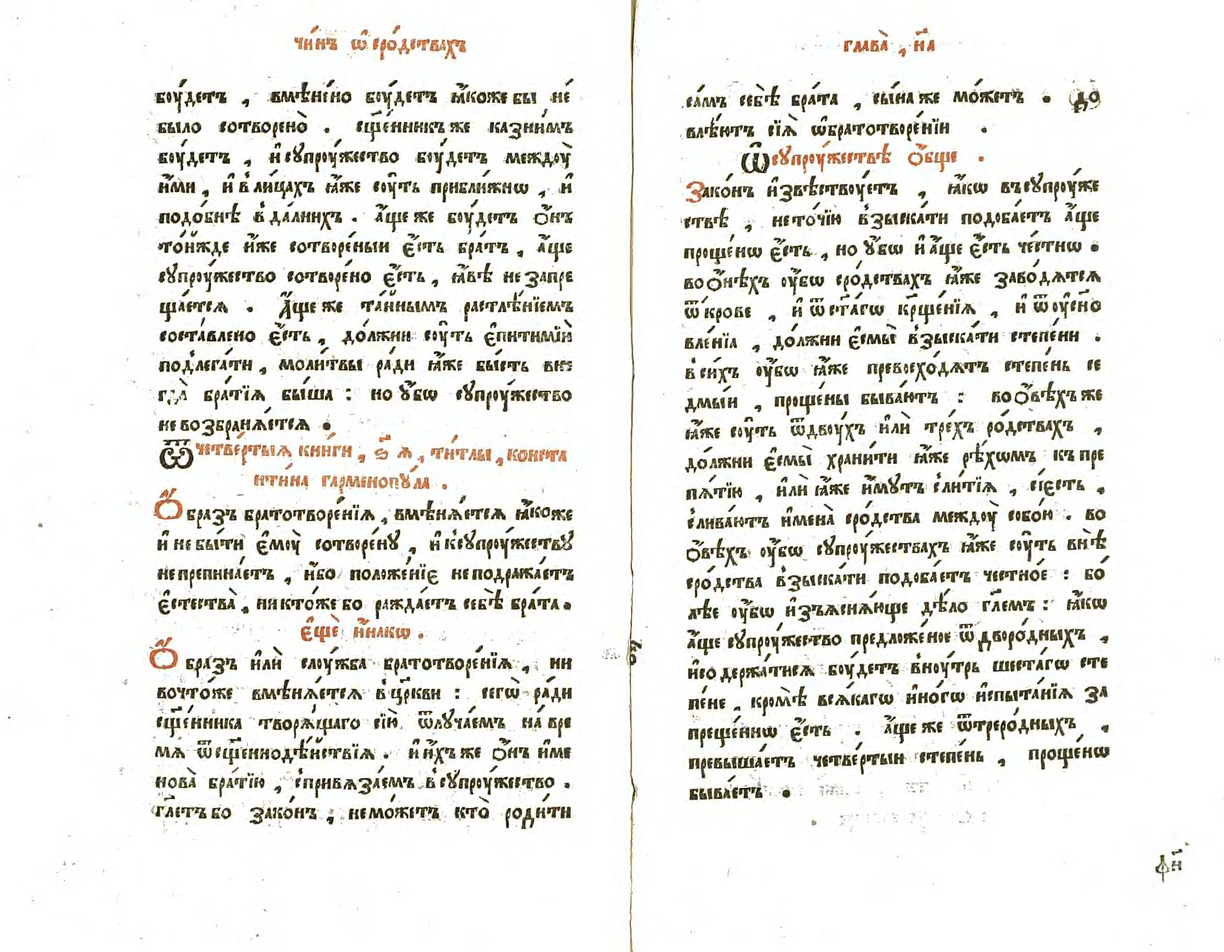 чи́нъ ѡ҆ сро́дствахъ
бꙋ́детъ , вмѣне́но бꙋ́детъ ꙗ҆́коже бы не́
было сотворено̀ . сщ҃е́нникъ же казни́мъ
бꙋ́детъ , и҆ сꙋпрꙋ́жество бꙋ́детъ междꙋ̀
и҆́ми , и҆ в лица́хъ ꙗ҆̀же сꙋ́ть прибли́жнѡ , и҆
подо́бнѣ в да́лнихъ . а҆́ще же бꙋ́детъ о҆́нъ
то́йжде и҆́же сотворе́ныи є҆́сть бра́тъ , а҆́ще
сꙋпрꙋ́жество сотворе́но є҆́сть , ꙗ҆́вѣ не запре
ща́ется . А҆́ще же та́йнымъ растлѣ́нїемъ
соста́влено є҆́сть , до́лжни сꙋ́ть є҆питимїи
подлега́ти , моли́твы ра́ди ꙗ҆́же бы́сть вне
гда̀ бра́тїѧ бы́ша : но ᲂу҆́бѡ сꙋпрꙋ́жество
не возбранѧ́ется .
Ѿ четве́ртыѧ кни́ги , ѕ҃ ѧ , ти́тлы , конста
нти́на гарменопꙋ́ла .
О҆́бразъ братотворе́нїѧ , вмѣнѧ́ется ꙗ҆́коже
и҆ не бы́ти є҆мꙋ̀ сотворе́нꙋ , и҆ к сꙋпрꙋ́жествꙋ
не препина́етъ , и҆́бо положе́нїе не подража́етъ
є҆стества̀ , никто́же бо ражда́етъ себѣ̀ бра́та .
є҆щѐ и҆́накѡ .
О҆́бразъ и҆лѝ слꙋ́жба братотворе́нїѧ , ни
во что́же вмѣнѧ́ется в цр҃кви : сегѡ̀ ра́ди
сщ҃е́нника творѧ́щаго сїю̀ ѿлꙋча́емъ на вре́
мѧ ѿ сщ҃еннодѣ́йствїѧ . и҆ и҆́хъ же о҆́нъ и҆ме
нова̀ бра́тїю , спривѧза́емъ в сꙋпрꙋ́жество .
гл҃етъ бо зако́нъ , не мо́жетъ кто̀ роди́ти
глава̀ , н҃а
са́мъ себѣ̀ бра́та , сы́на же мо́жетъ . до
влѣ́ютъ сїѧ̀ ѡ҆ братотворе́нїи .
Ѡ҆ сꙋпрꙋ́жествѣ о҆́бще .
Зако́нъ и҆звѣ́ствꙋетъ , ꙗ҆́кѡ въ сꙋпрꙋ́же
ствѣ , не то́чїю взыска́ти подоба́етъ а҆́ще
проще́нѡ є҆́сть , но ᲂу҆́бѡ и҆ а҆́ще є҆́сть че́стнѡ .
во о҆́нѣхъ ᲂу҆́бѡ сро́дствахъ ꙗ҆́же заво́дѧтся
ѿ кро́ве , и҆ ѿ ст҃а́гѡ кр҃ще́нїѧ , и҆ ѿ ᲂу҆сыно
вле́нїа , до́лжни є҆смы̀ взыска́ти степе́ни .
в си́хъ ᲂу҆́бѡ ꙗ҆́же превосхо́дѧтъ степе́нь се
дмы́й , проще́ны быва́ютъ : во о҆́вѣхъ же
ꙗ҆́же сꙋ́ть ѿ двꙋ́хъ и҆лѝ тре́хъ ро́дствахъ ,
до́лжни є҆смы̀ храни́ти ꙗ҆́же рѣ́хомъ къ пре
пѧ́тїю , и҆лѝ ꙗ҆́же и҆́мꙋтъ сли́тїѧ , сїе́сть ,
слива́ютъ и҆мена̀ сро́дства междꙋ̀ собо́ю . во
о҆́вѣхъ ᲂу҆́бѡ сꙋпрꙋ́жествахъ ꙗ҆́же сꙋ́ть внѣ̀
сро́дства взыска́ти подоба́етъ честно́е : бо́
лѣе ᲂу҆́бѡ и҆зъѧснѧ́юще дѣ́ло гл҃емъ : ꙗ҆́кѡ
а҆́ще сꙋпрꙋ́жество предложе́ное ѿ дворо́дныхъ ,
и҆ содержа́тисѧ бꙋ́детъ внꙋ́трь шеста́гѡ сте
пе́не , кромѣ̀ всѧ́кагѡ и҆но́гѡ и҆спыта́нїѧ за
преще́ннѡ є҆́сть . а҆́ще же ѿ треро́дныхъ ,
превыша́етъ четве́ртыи степе́нь , проще́нѡ
быва́етъ .
фн҃